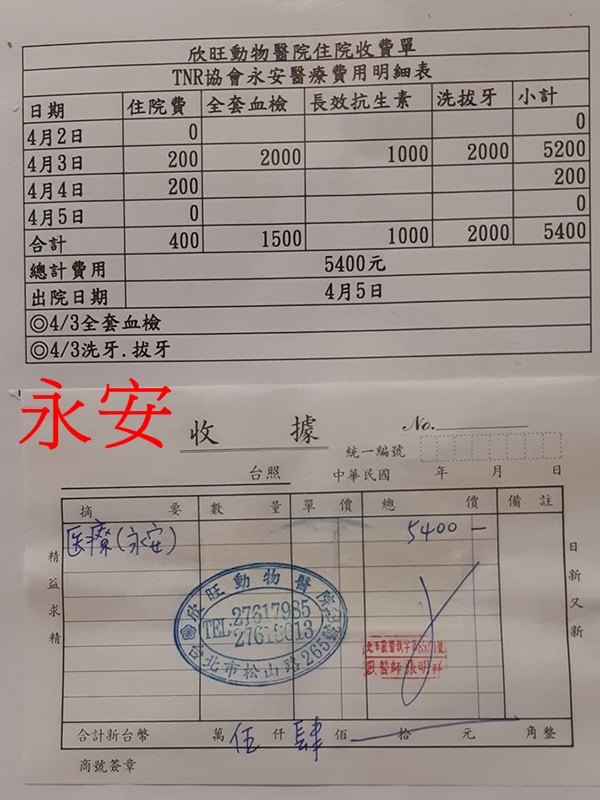 欣旺動物醫院住院收費單
TNR協會永安醫療費用明細表
日期 住院費 全套血檢 長效抗生素 洗拔牙 小計
4月2日 0 0
4月3日 200 2000 1000 2000 5200
4月4日 200 200
4月5日 0 0
合計 400 1500 1000 2000 5400
總計費用 5400元
出院日期 4月5日
◎4/3全套血檢
◎4/3洗牙.拔牙
永安
收據
No.
統一編號
台照 中華民國 年 月 日
摘要 數量 單價 總價 備註
医療(永安) 5400—
精益求精
日新又新
欣旺動物醫院
TEL:27617985
台北市松山路265
獸醫師 張明祥
合計新台幣 萬 伍 仟 肆 佰 拾 元 角整
商號簽章